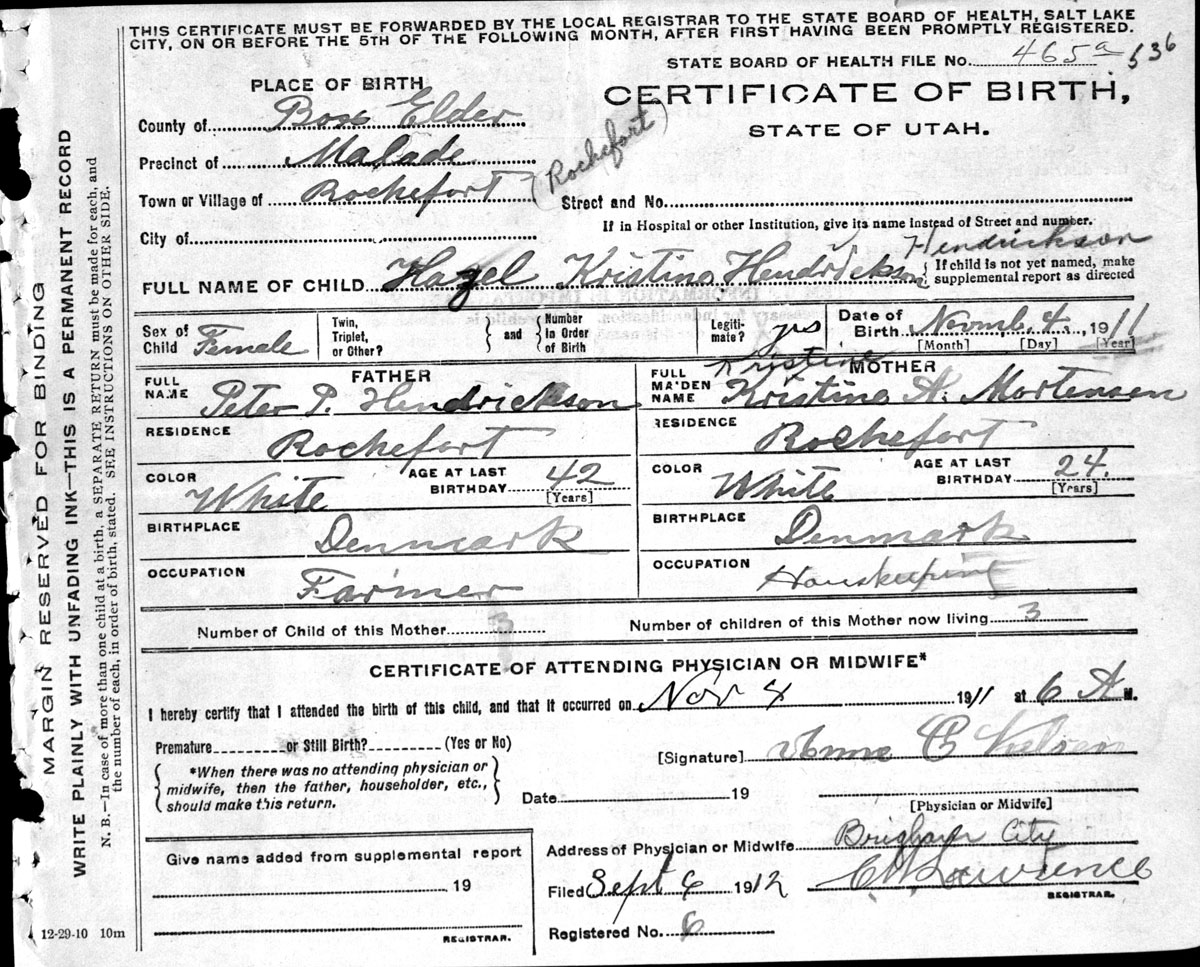 THIS CERTIFICATE MUST BE FORWARDED BY THE LOCAL REGISTRAR TO THE STATE BOARD OF HEALTH, SALT LAKE
CITY, ON OR BEFORE THE 5TH OF THE FOLLOWING MONTH, AFTER FIRST HAVING BEEN PROMPTLY REGISTERED.
STATE BOARD OF HEALTH FILE No. 465a 536
PLACE OF BIRTH
CERTIFICATE OF BIRTH,
STATE OF UTAH.
County of Box Elder
Precinct of Malade
Town or Village of Rochefort (Rochefort)
Street and No.
If in Hospital or other Institution, give its name instead of Street and number.
City of
Hendrickson
FULL NAME OF CHILD Hazel Kristina Hendrickson { If child is not yet named, make
supplemental report as directed
Sex of Child Female
Twin, Triplet, or Other? } and { Number in Order of Birth
Legiti-mate? yes
Date of Birth Novmb. 4. 1911
[Month] [Day] [Year]
FATHER
FULL NAME Peter P. Hendrickson
RESIDENCE Rochefort
COLOR White
AGE AT LAST BIRTHDAY 42
[Years]
BIRTHPLACE Denmark
OCCUPATION Farmer
MOTHER
Kristine
FULL MAIDEN NAME Kristina A. Mortensen
RESIDENCE Rochefort
COLOR White
AGE AT LAST BIRTHDAY 24.
[Years]
BIRTHPLACE Denmark
OCCUPATION Houskeeping
Number of Child of this Mother 3
Number of children of this Mother now living 3
CERTIFICATE OF ATTENDING PHYSICIAN OR MIDWIFE*
I hereby certify that I attended the birth of this child, and that it occurred on Nov 4 1911 at 6 A M.
Premature or Still Birth? (Yes or No)
[Signature]
{ *When there was no attending physician or
midwife, then the father, householder, etc.,
should make this return. }
Date 19
[Physician or Midwife]
Give name added from supplemental report
19
REGISTRAR.
Address of Physician or Midwife Brigham City
Filed Sept 6 1912 Lawrence
REGISTRAR.
Registered No. 6
12-29-10 10m
MARGIN RESERVED FOR BINDING
WRITE PLAINLY WITH UNFADING INK—THIS IS A PERMANENT RECORD
N. B.—In case of more than one child at a birth, a SEPARATE RETURN must be made for each, and
the number of each, in order of birth, stated. SEE INSTRUCTIONS ON OTHER SIDE.